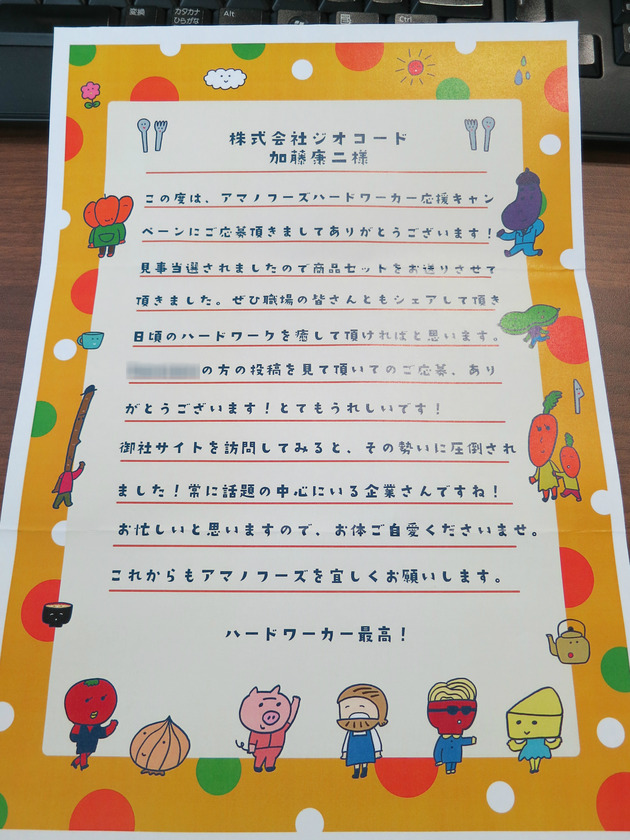 変換
カタカナ
ひらがな
Alt
Ctrl
株式会社ジオコード
加藤康二様
この度は、アマノフーズハードワーカー応援キャン
ペーンにご応募頂きましてありがとうございます！
見事当選されましたので商品セットをお送りさせて
頂きました。ぜひ職場の皆さんともシェアして頂き
日頃のハードワークを癒して頂ければと思います。
の方の投稿を見て頂いてのご応募、あり
がとうございます！とてもうれしいです！
御社サイトを訪問してみると、その勢いに圧倒され
ました！常に話題の中心にいる企業さんですね！
お忙しいと思いますので、お体ご自愛くださいませ。
これからもアマノフーズを宜しくお願いします。
ハードワーカー最高！